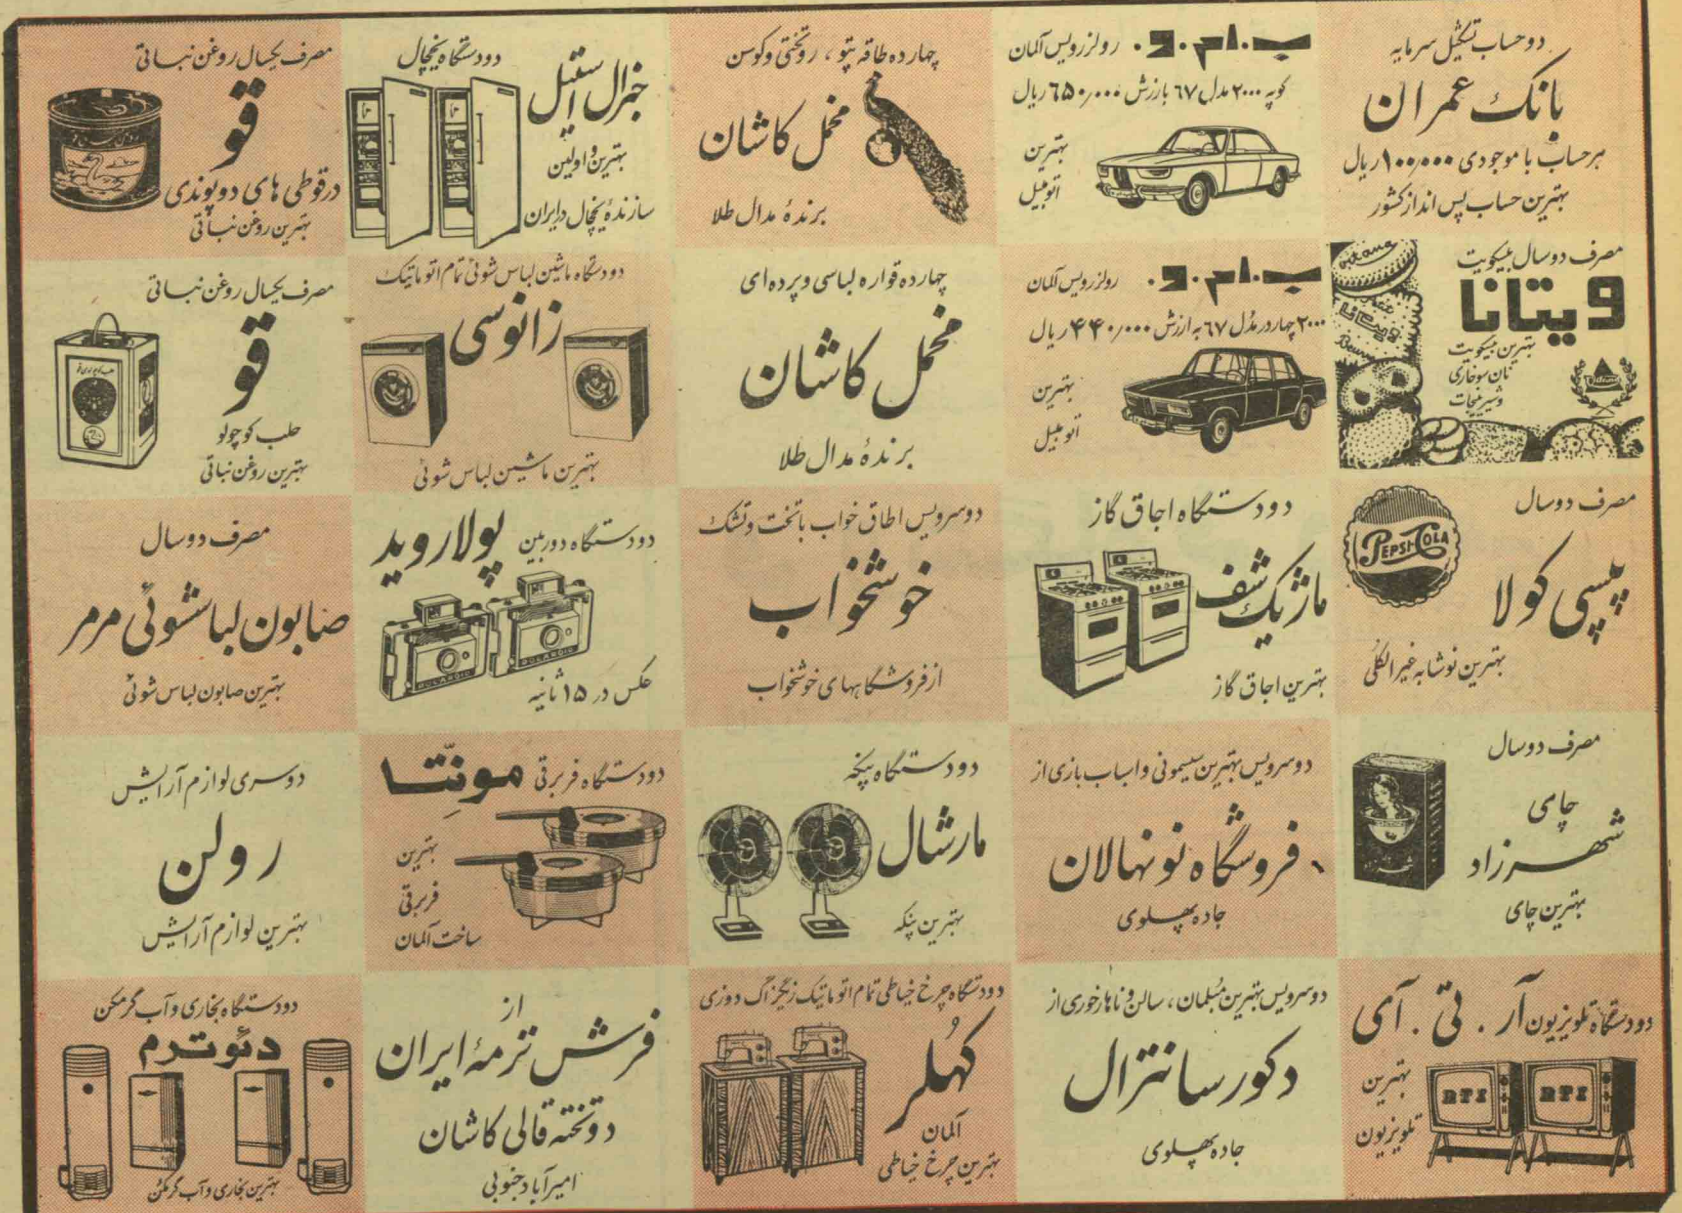 دو حساب تشکیل سرمایه
بانک عمران
هر حساب با موجودی ۱۰۰٫۰۰۰ ریال
بهترین حساب پس انداز کشور
ب.ام.و. رولزرویس آلمان
کوپه ۲۰۰۰ مدل ۶۷ بارزش ۶۵۰٫۰۰۰ ریال
بهترین
اتومبیل
چهارده طاقه پتو ، روتختی و کوسن
مخمل کاشان
برندهٔ مدال طلا
دو دستگاه یخچال
جنرال استیل
بهترین و اولین
سازندهٔ یخچال در ایران
مصرف یکسال روغن نباتی
قو
در قوطی های دو پوندی
بهترین روغن نباتی
مصرف دو سال بیسکویت
ویتانا
بهترین بیسکویت
نان سوخاری
و شیرینیجات
ویتانا
ب.ام.و. رولزرویس آلمان
۲۰۰۰ چهار در مدل ۶۷ به ارزش ۴۴۰٫۰۰۰ ریال
بهترین
اتومبیل
چهارده قواره لباسی و پرده ای
مخمل کاشان
برندهٔ مدال طلا
دو دستگاه ماشین لباس شوئی تمام اتوماتیک
زانوسی
بهترین ماشین لباس شوئی
مصرف یکسال روغن نباتی
قو
حلب کوچولو
بهترین روغن نباتی
مصرف دو سال
PEPSI-COLA
پپسی کولا
بهترین نوشابه غیر الکلی
دو دستگاه اجاق گاز
ماژیک شف
بهترین اجاق گاز
دو سرویس اطاق خواب با تخت و تشک
خوشخواب
از فروشگاههای خوشخواب
دو دستگاه دوربین پولاروید
POLAROID
POLAROID
عکس در ۱۵ ثانیه
مصرف دو سال
صابون لباسشوئی مرمر
بهترین صابون لباس شوئی
مصرف دو سال
چای
شهرزاد
بهترین چای
دو سرویس بهترین سیسمونی و اسباب بازی از
فروشگاه نونهالان
جاده پهلوی
دو دستگاه پنکه
مارشال
بهترین پنکه
دو دستگاه فر برقی مونتا
بهترین
فر برقی
ساخت آلمان
دو سری لوازم آرایش
رولن
بهترین لوازم آرایش
دو دستگاه تلویزیون آر . تی . آی
بهترین
تلویزیون
RTI
RTI
دو سرویس بهترین مبلمان ، سالن و ناهارخوری از
دکور سانترال
جاده پهلوی
دو دستگاه چرخ خیاطی تمام اتوماتیک زیگزاگ دوزی
کهلر
آلمان
بهترین چرخ خیاطی
از
فرش ترمهٔ ایران
دو تخته قالی کاشان
امیرآباد جنوبی
دو دستگاه بخاری و آب گرمکن
دئوترم
بهترین بخاری و آب گرمکن